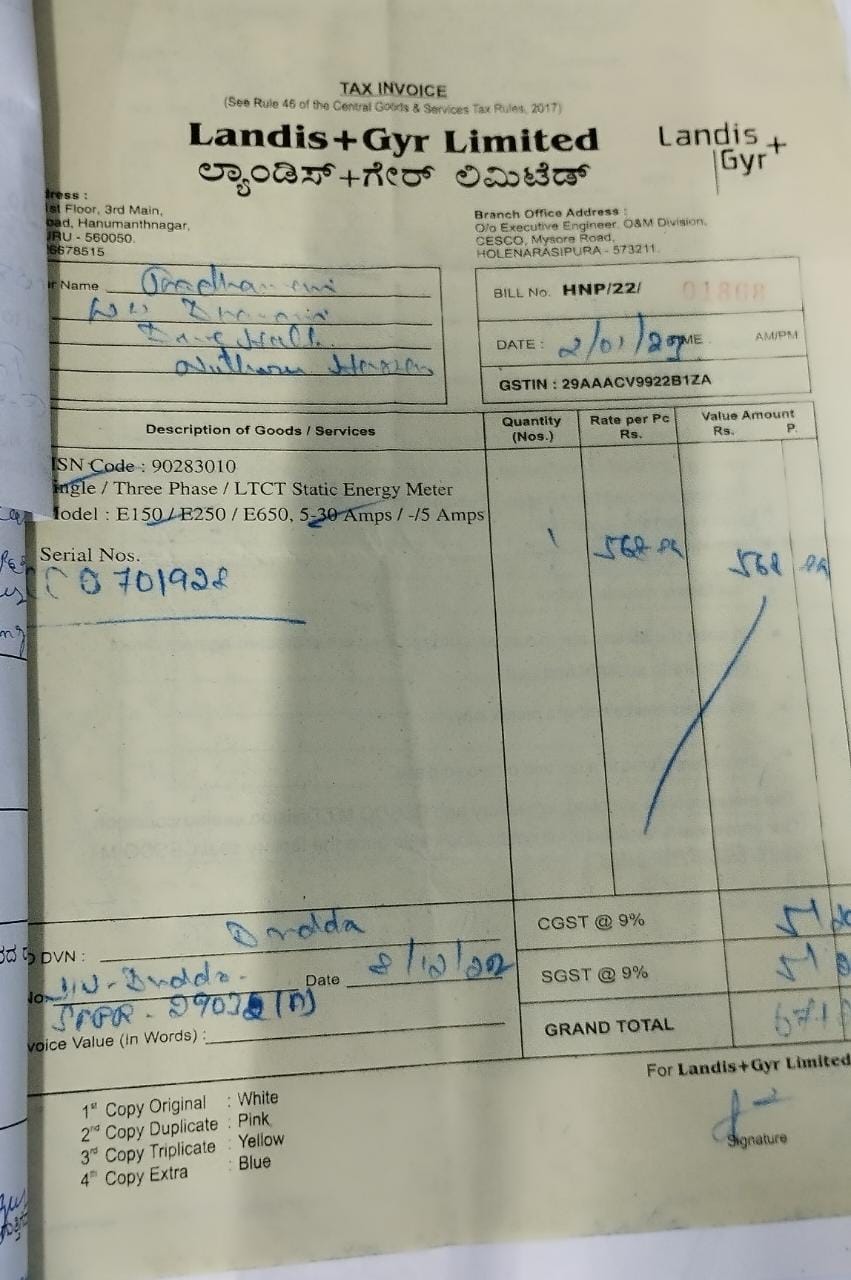 TAX INVOICE
(See Rule 46 of the Central Goods & Services Tax Rules, 2017)
Landis+Gyr Limited
Landis
Gyr+
ಲ್ಯಾಂಡಿಸ್+ಗೇರ್ ಲಿಮಿಟೆಡ್
ress :
st Floor, 3rd Main,
oad, Hanumanthnagar,
URU - 560050.
6678515
Branch Office Address :
O/o Executive Engineer, O&M Division,
CESCO, Mysore Road,
HOLENARASIPURA - 573211.
r Name
BILL No. HNP/22/ 01868
DATE : 2/01/ ME. AM/PM
GSTIN : 29AAACV9922B1ZA
Description of Goods / Services
Quantity (Nos.)
Rate per Pc Rs.
Value Amount Rs. P.
ISN Code : 90283010
ingle / Three Phase / LTCT Static Energy Meter
Model : E150 / E250 / E650, 5-30 Amps / -/5 Amps
Serial Nos.
0701928
1
568
568
DVN : Dodda
CGST @ 9% 51
No. Date 8/12/202
SGST @ 9% 51
GRAND TOTAL 671
voice Value (in Words) :
For Landis+Gyr Limited
Signature
1st Copy Original : White
2nd Copy Duplicate : Pink
3rd Copy Triplicate : Yellow
4th Copy Extra : Blue